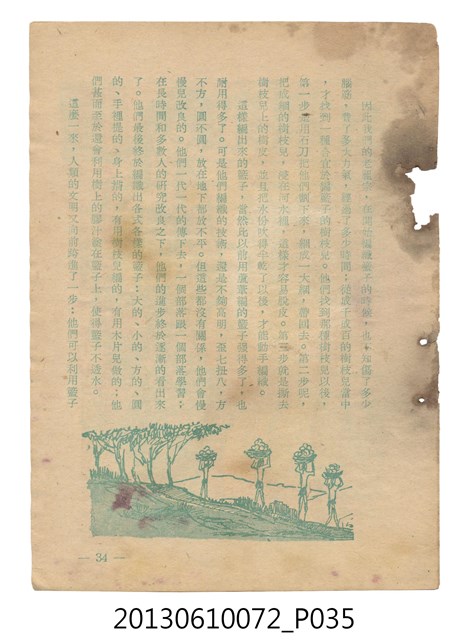 因此我們的老祖宗，在開始編織籃子的時候，也不知傷了多少
腦筋，費了多大力氣，經過了多少時間，從成千成百的樹枝兒當中
，才找到一種合宜於編籃子的樹枝兒。他們找到那種樹枝兒以後，
第一步是用石刀把他們割下來，綑成一大綑，帶回去。第二步呢，
把成綑的樹枝兒，浸在河水裡，這樣才容易脫皮。第三步就是撕去
樹枝兒上的樹皮，並且把水份吹得半乾了以後，才能動手編織。
這樣編出來的籃子，當然比以前用蘆葦編的籃子強得多了，也
耐用得多了。可是他們編織的技術，還是不夠高明，歪七扭八，方
不方，圓不圓，放在地下都放不平。但這些都沒有關係，他們會慢
慢兒改良的。他們一代一代的傳下去，一個部落跟一個部落學習；
在長時間和多數人的研究改良之下，他們的進步終於逐漸的看出來
了。他們最後終於編織出各式各樣的籃子：大的、小的、方的、圓
的、手裡提的、身上揹的，有用樹枝兒編的，有用木片兒做的；他
們甚而至於還會利用樹上的膠汁塗在籃子上，使得籃子不透水。
這麼一來，人類的文明又向前跨進了一步；他們可以利用籃子
— 34 —
20130610072_P035